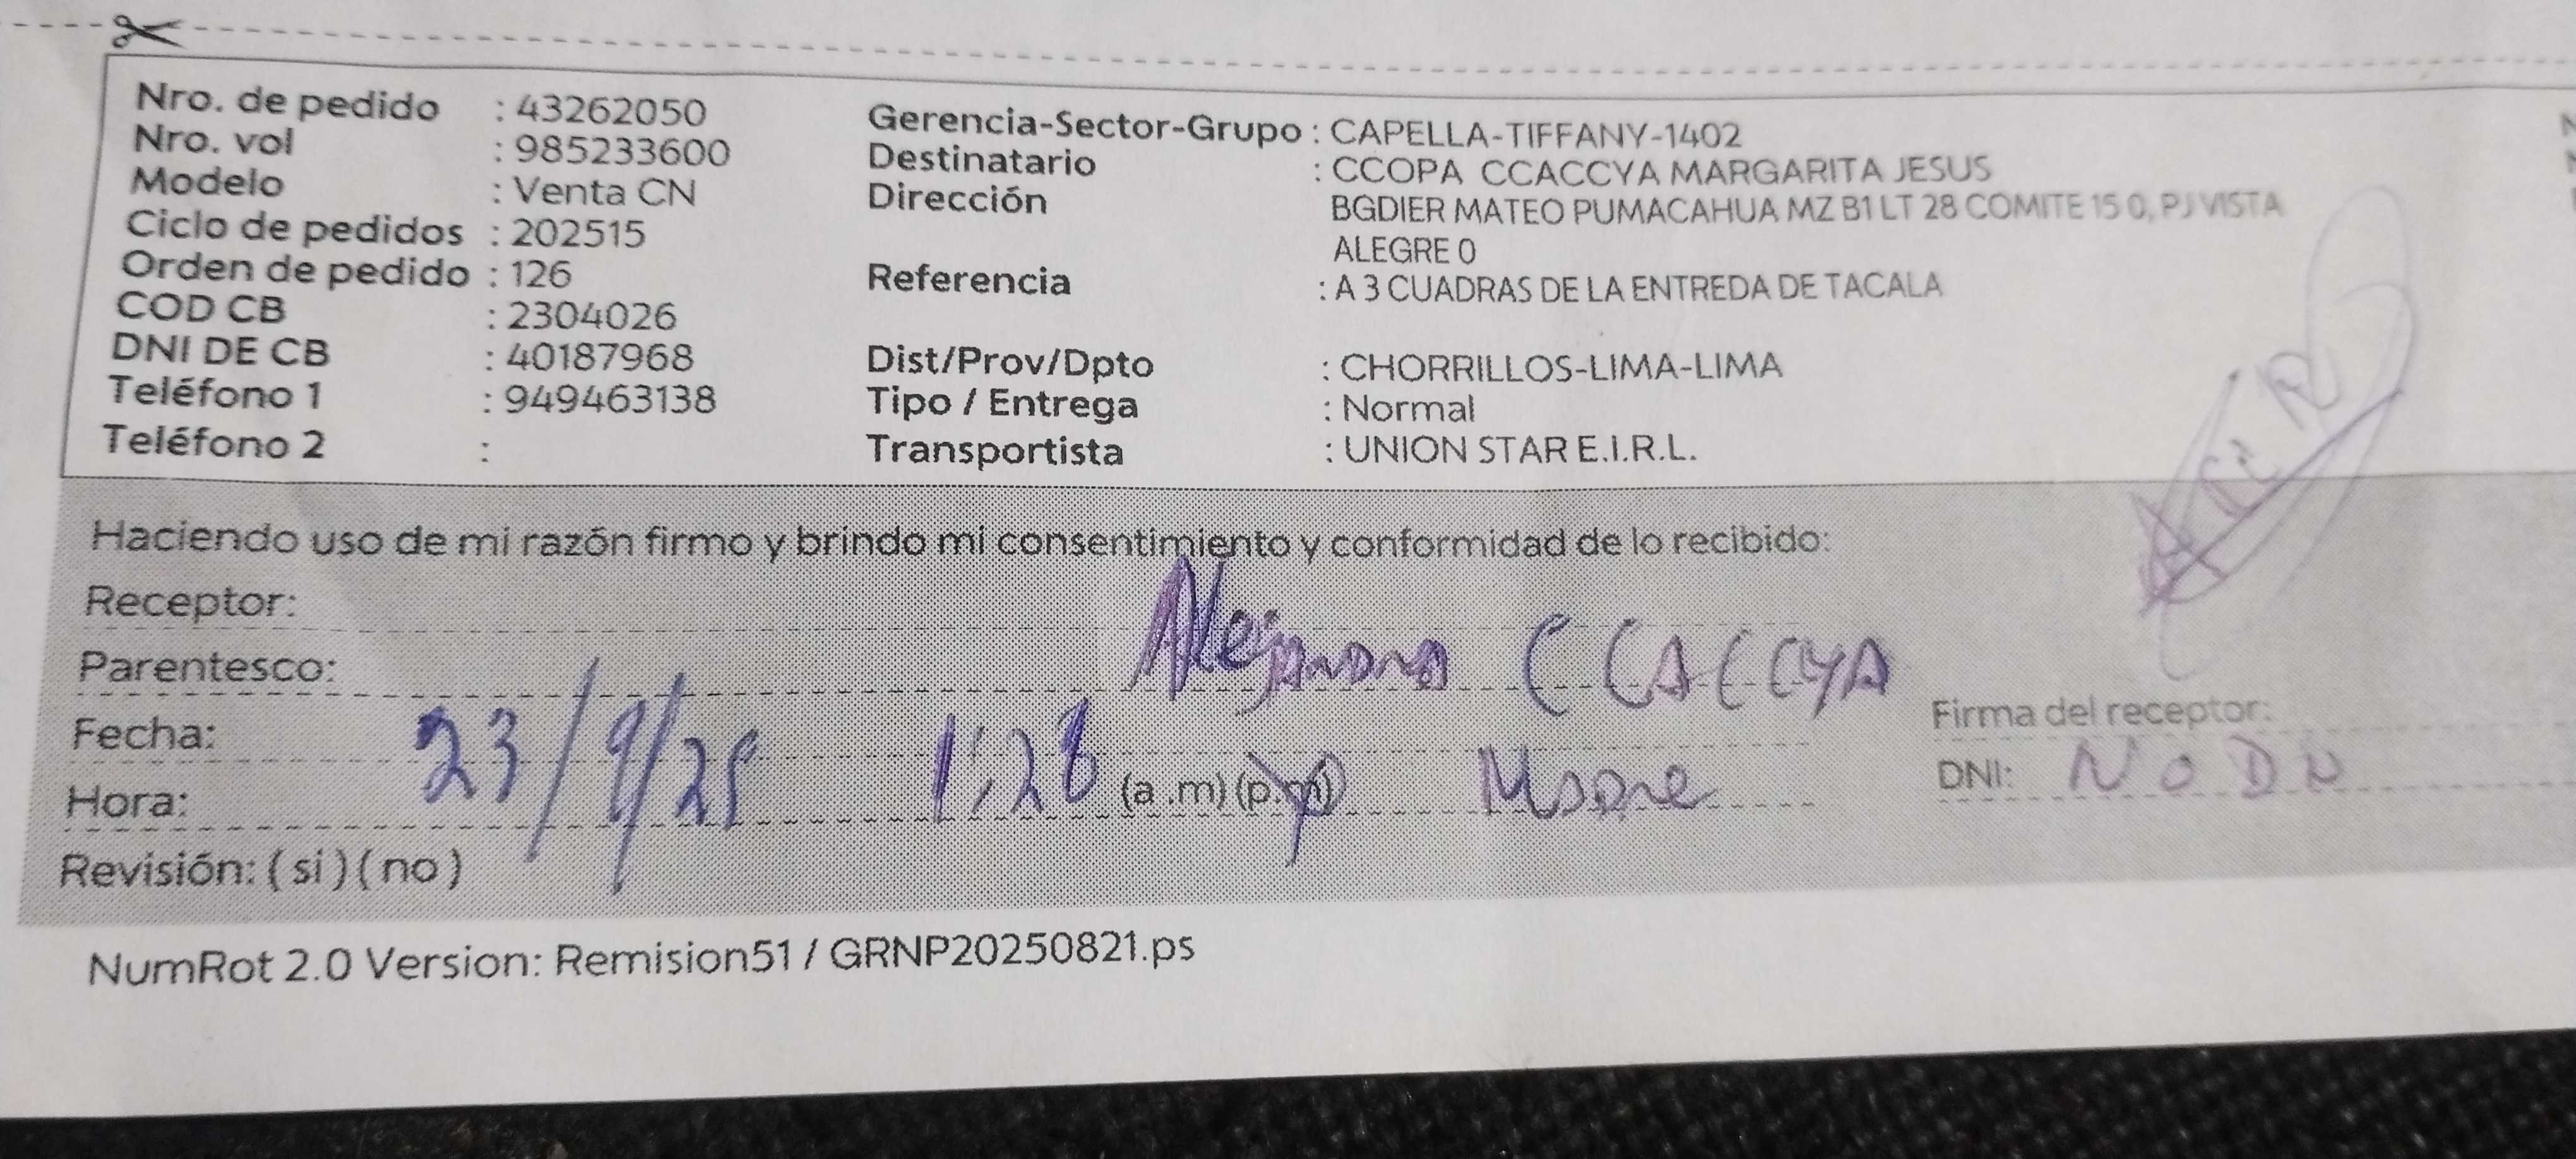 Nro. de pedido : 43262050
Nro. vol : 985233600
Modelo : Venta CN
Ciclo de pedidos : 202515
Orden de pedido : 126
COD CB : 2304026
DNI DE CB : 40187968
Teléfono 1 : 949463138
Teléfono 2 :
Gerencia-Sector-Grupo : CAPELLA-TIFFANY-1402
Destinatario : CCOPA CCACCYA MARGARITA JESUS
Dirección BGDIER MATEO PUMACAHUA MZ B1 LT 28 COMITE 15 0, PJ VISTA
ALEGRE 0
Referencia : A 3 CUADRAS DE LA ENTREDA DE TACALA
Dist/Prov/Dpto : CHORRILLOS-LIMA-LIMA
Tipo / Entrega : Normal
Transportista : UNION STAR E.I.R.L.
Haciendo uso de mi razón firmo y brindo mi consentimiento y conformidad de lo recibido:
Receptor:
Parentesco: CCACCYA
Fecha: 23/9/25
Hora: 1:28 (a .m) (p.m)
Revisión: ( si ) ( no )
Firma del receptor:
DNI:
NumRot 2.0 Version: Remision51 / GRNP20250821.ps